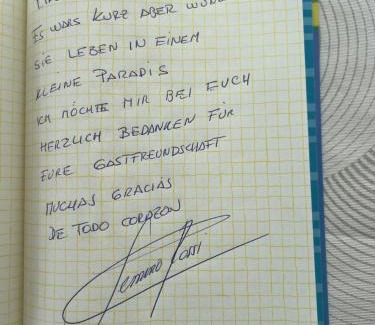 ES WARS KURZ ABER
SIE LEBEN IN EINEM
KLEINE PARADIS
ICH MÖCHTE MIR BEI EUCH
HERZLICH BEDANKEN FÜR
EURE GASTFREUNDSCHAFT
MUCHAS GRACIAS
DE TODO CORAZON